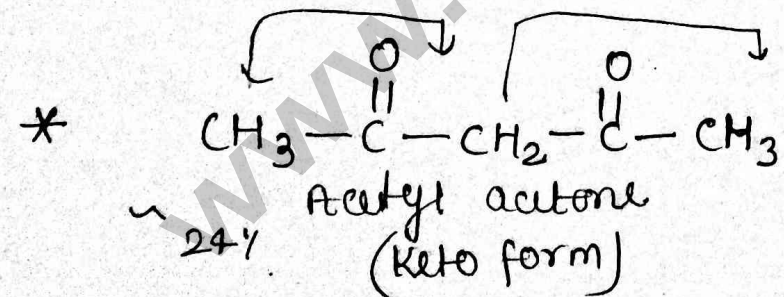 www.
O O
* CH3 — C — CH2 — C — CH3
Acetyl acetone
~ 24% (Keto form)